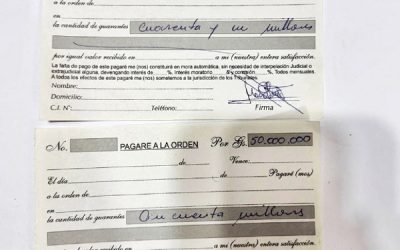 a la orden de
la cantidad de guaraníes Cuarenta y un millons
por igual valor recibido en a mi (nuestra) entera satisfacción.
La falta de pago de este pagaré me (nos) constituirá en mora automática, sin necesidad de interpelación Judicial o
extrajudicial alguna, devengando interés de %. Interés moratorio % y comisión %. Todos mensuales.
A todos los efectos de este pagaré me (nos) sometemos a la jurisdicción de los Tribunales
Nombre:
Domicilio:
C.I. N°: Teléfono: Firma
No. PAGARE A LA ORDEN Por Gs. 50.000.000
de de Vence:
El día de de Pagaré (mos)
a la orden de
la cantidad de guaraníes Cincuenta millons
a mi (nuestra) entera satisfacción.